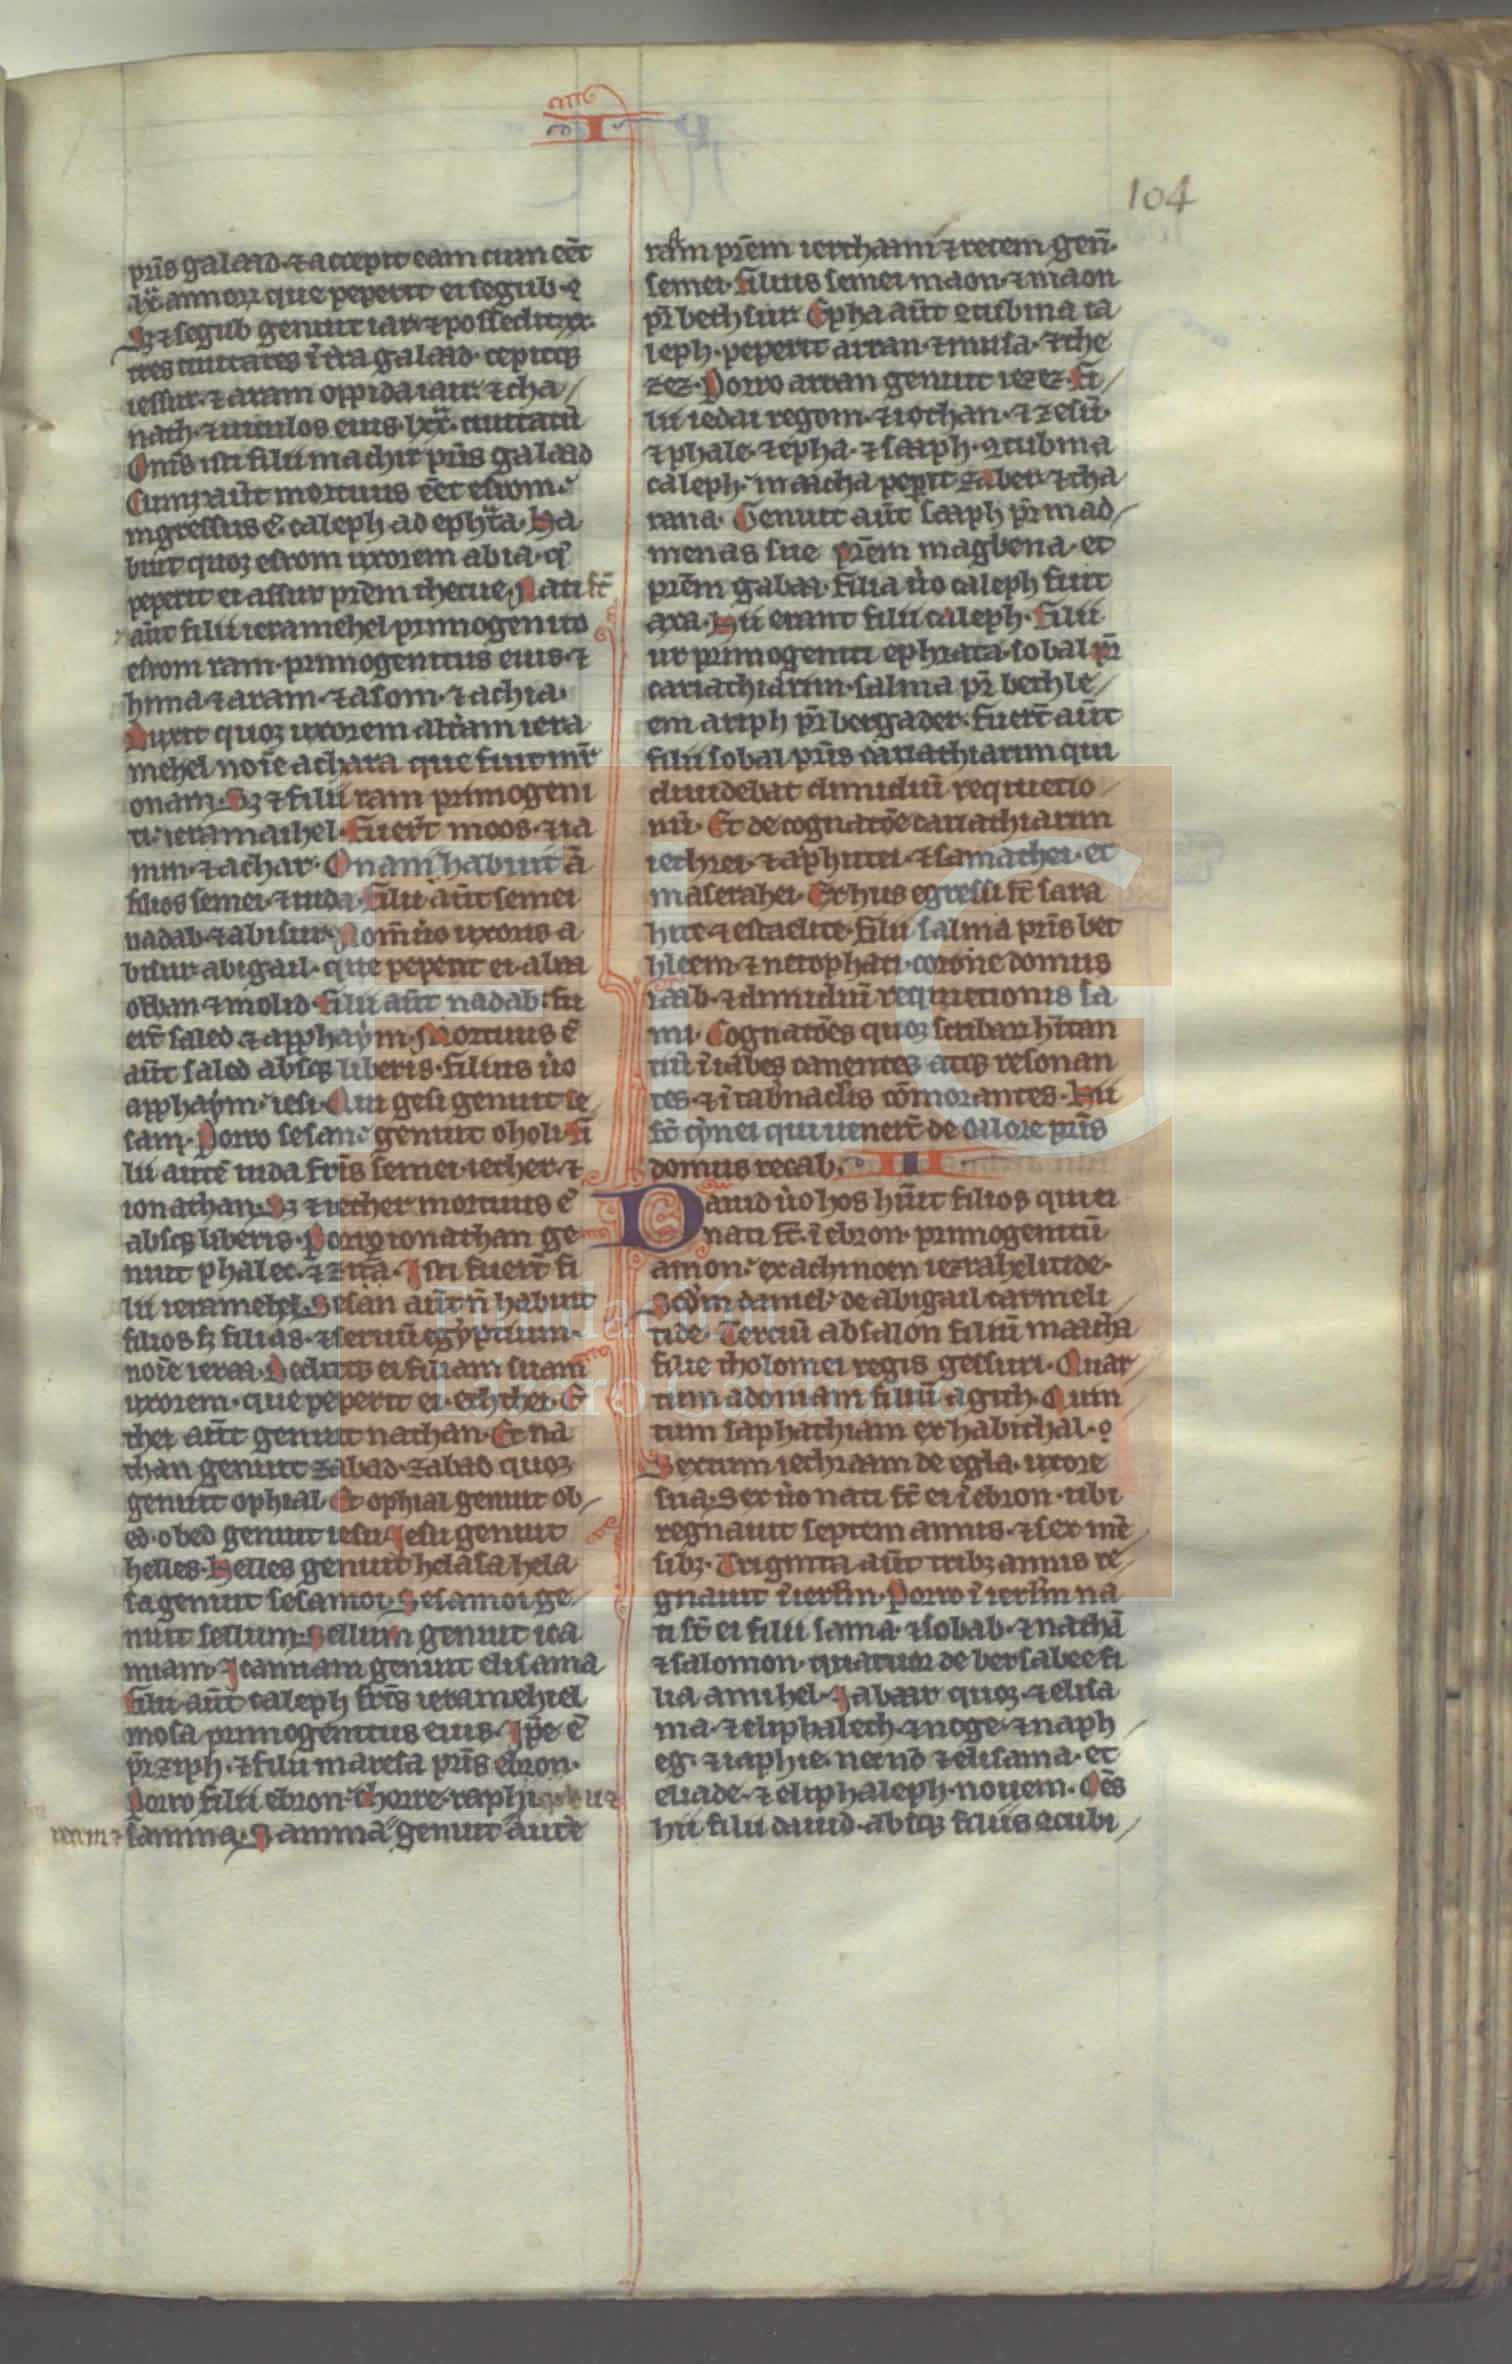 I
104
pris galaad ⁊ accepit eam cum eēt
.lx. annorꝝ que peperit ei segub.
Sꝫ ⁊ segub genuit iair ⁊ possedit .xx.
tres ciuitates ī t̄ra galaad. cepitqꝫ
iessur. ⁊ aram oppida iair. ⁊ cha/
nath. ⁊ uiculos eius .lx. ciuitatū
Om̄s isti filii machir pr̄is galaad
Cum aūt mortuus eēt esrom.
ingressus ē caleph ad ephrata. Ha
buit quoꝫ esrom uxorem abia. q̄
peperit ei assur pr̄em thecue. Nati sūt
aūt filii ieramehel primogenito
esrom ram. primogenitus eius. ⁊
hima. ⁊ aram. ⁊ asom. ⁊ achia.
Duxit quoꝫ uxorem alt̄am iera
mehel noīe achara que fuit mr̄
onam. Sꝫ ⁊ filii ram primogeni
ti. ieramaihel. Fuer̄t moos. ⁊ ia
min. ⁊ achar. Onam habuit ā
filios semei. ⁊ iuda. Filii aūt semei
nadab. ⁊ abisur. Nom̄ ūo uxoris a
bisur abigail. que peperit ei. alia
obban ⁊ molid. Filii aūt nadab. fu
er̄t saled ⁊ apphaym. Mortuus ē
aūt saled absqꝫ liberis. filius ūo
apphaym. iesi. Qui gesi genuit se
sam. Porro sesan genuit oholi. Fi
lii autē iuda fr̄is semei. iether. ⁊
ionathan. Sꝫ ⁊ iether mortuus ē
absqꝫ liberis. Porro ionathan ge
nuit phalec. ⁊ ziza. Isti fuer̄t fi
lii ieramehel. Sesan aūt n̄ habuit
filios sꝫ filias. ⁊ seruū egyptium.
noīe ieraa. Deditqꝫ ei filiam suam
uxorem. que peperit ei. ethei. E
thei aūt genuit nathan. Et na
than genuit zabad. zabad quoꝫ
genuit ophial. Et ophial genuit ob/
ed. obed genuit iesu. Iesu genuit
helles. Helles genuit helasa hela
sa genuit sesamoi. Sesamoi ge
nuit sellum. Sellum genuit ica
miam. Icamiam genuit elisama
Filii aūt caleph fr̄is ieramehiel
mosa primogenitus eius. Ip̄e ē
pr̄ ziph. ⁊ filii maresa pr̄is ebron.
Porro filii ebron. chorre. raphi
samma. Samma genuit autē
ram pr̄em ierchaam ⁊ recem gen̄.
semei. Filius semei maon. ⁊ maon
pr̄ bethsur. Epha aūt ꝯcubina ca
leph. peperit arran. ⁊ musa. ⁊ the
zez. Porro arran genuit iezez. Fi/
lii iedai regom. ⁊ iothan. ⁊ zesū.
⁊ phale. ⁊ epha. ⁊ saaph. ꝯcubina
caleph. maacha pep̄it zaber ⁊ tha
rana. Genuit aūt saaph pr̄ mad/
menas sue pr̄em magbena. et
pr̄em gabaa. filia ūo caleph fuit
axa. Hii erant filii caleph. Filii
ur primogeniti ephrata. sobal pr̄
cariathiarim. salma pr̄ bethle/
em ariph pr̄ bergader. Fuer̄t aūt
filii sobal pr̄is cariathiarim qui
diuidebat dimidiū requietio
nū. Et de cognatōe cariathiarim
iethrei. ⁊ aphutei. ⁊ samathei. et
maserahei. Ex hiis egressi sūt sara
hite. ⁊ estaelite. Filii salma pr̄is bet
hleem. ⁊ netophati. corone domus
ioab. ⁊ dimidiū requietionis sa
rai. Cognatōes quoꝫ scribarꝝ hītan
tiū ī iabes canentes atqꝫ resonan
tes. ⁊ ī tab̄naclis cōmorantes. Hii
sūt cynei qui uener̄t de calore pr̄is
domus recab. III
Dauid ūo hos h̄uit filios qui ei
nati sūt. ī ebron. primogenitū
amon. ex achinoen iezrahelitide.
Scd̄m daniel. de abigail carmeli
tide. Terciū absalon filiū maacha
filie tholomei regis gessuri. Quar/
tum adoniam filiū agith. Quin
tum saphathiam ex habithal.
Sextum iethraam de egla. uxore
sua. Sex ūo nati sūt ei ī ebron. ubi
regnauit septem annis. ⁊ sex mē
sibꝫ. Triginta aūt tribꝫ annis re
gnauit ī ierl̄m. Porro ī ierl̄m na
ti sūt ei filii sama. ⁊ sobab. ⁊ nathā
⁊ salomon. quatuor de bersabee fi
lia amihel. Iabaar quoꝫ. ⁊ elisa
ma. ⁊ eliphalech. ⁊ noge. ⁊ naph/
eg. ⁊ iaphie. necnō ⁊ elisama. et
eliade. ⁊ eliphaleph. nouem. Oēs
hii filii dauid. absqꝫ filiis ꝯcubi/
FLG
Fundación
Lázaro Galdiano